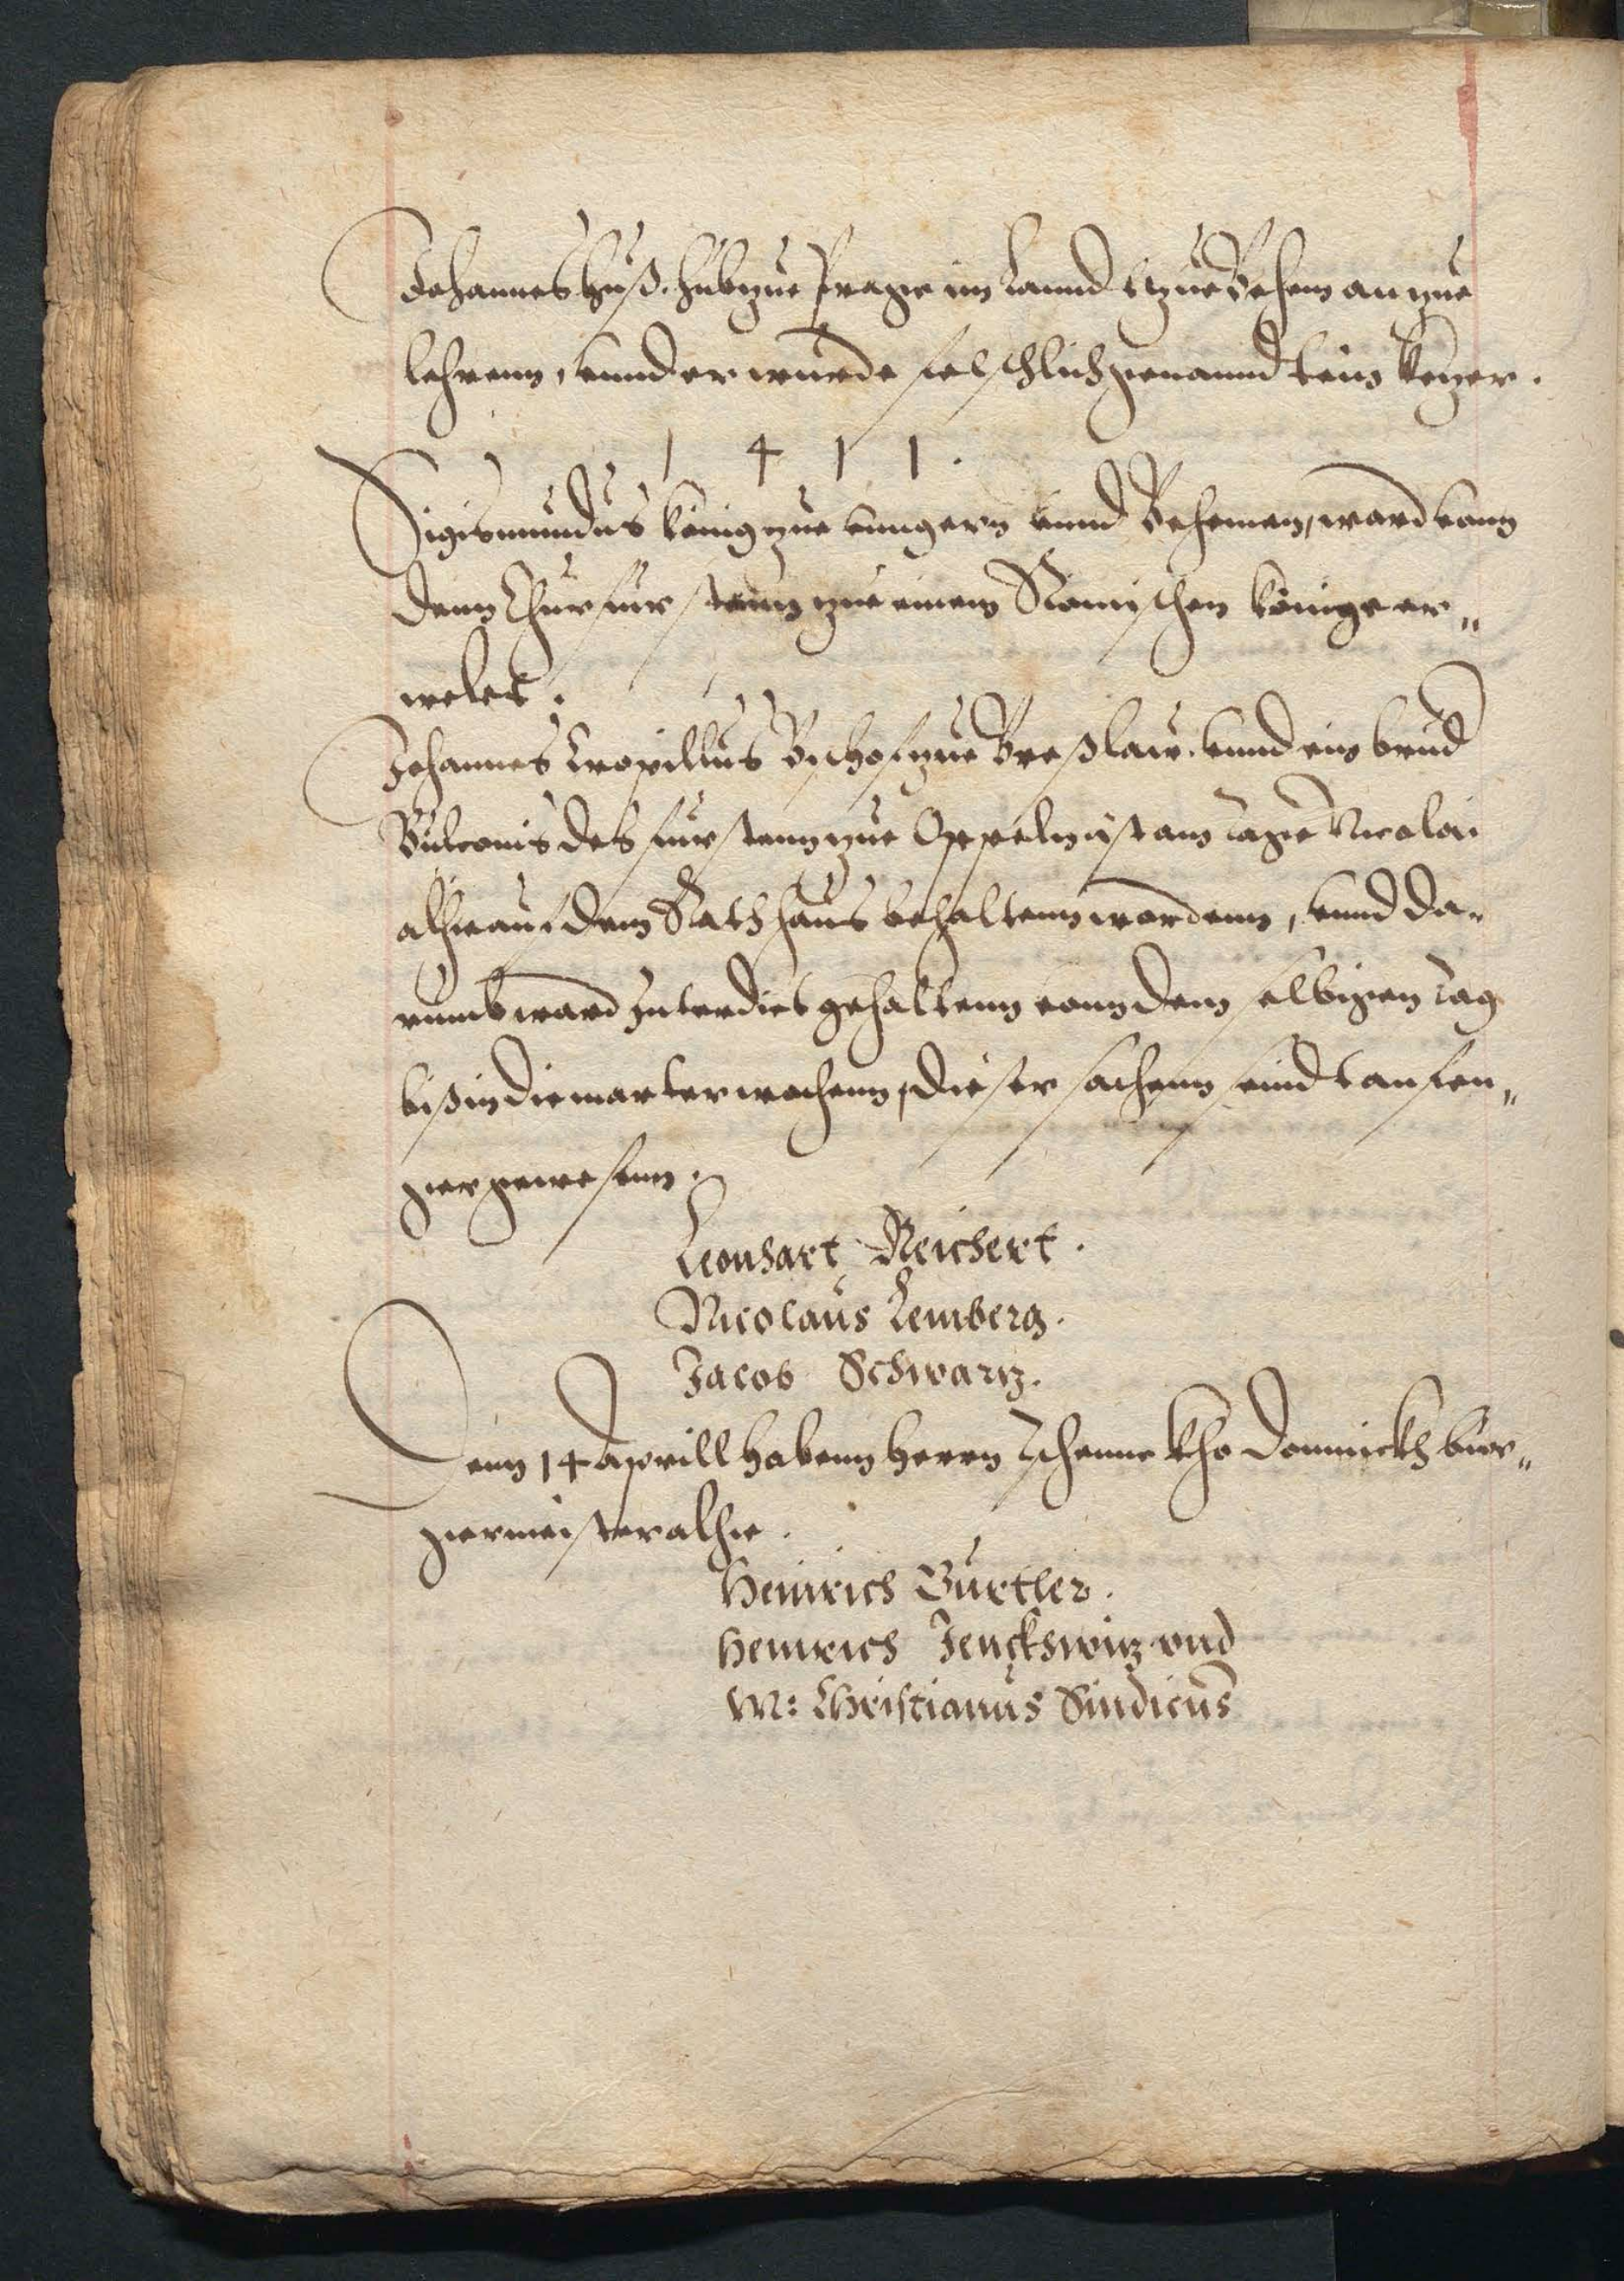 Johannes Huß. hub zue Prage im Lannd tzue Behem an zue
lehrenn, vnnd er wurde felschlich genannd kein ketzer.
1 4 1 1 .
Sigismundus könig zue vungern vnnd Behemen, ward vonn
denn Churfurstenn zue einem Römischen könige er„
welet.
Johannes Cropillus Bischof zue Breßlaw. vnnd ein brud
Bulconis des furstenn zue Oppeln ist am tage Nicolai
alhie auf dem Rathhaus behaltenn wordenn, vnnd da„
rumb ward Interdict gehaltenn vonn dem selbigen tag
biß in die marterwochenn, dieser sachenn seind anfen„
ger gewesenn.
Leonhart Reichert.
Nicolaus Lemberg.
Jacob Schwartz.
Denn 14 Aprill habenn Herrn Zschenne Kho Domnickh bur„
germeister alhie.
Heinrich Gurtler.
Heinrich Jenckhwitz vnd
M: Christianus Sindicus